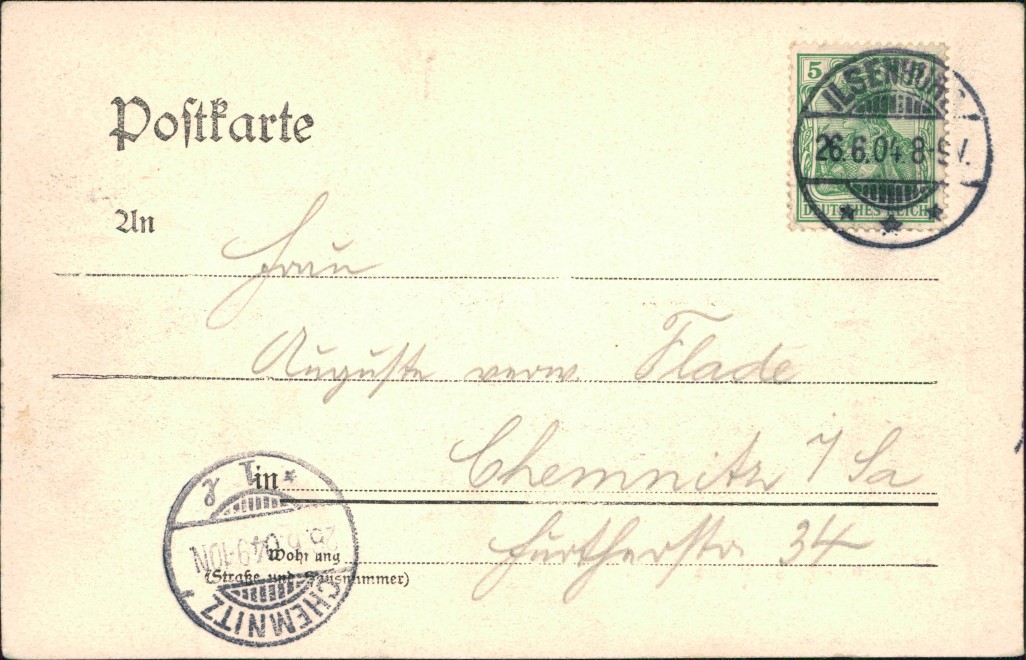 Postkarte
5
ILSENBURG
26.6.04 8-9V.
DEUTSCHES REICH
An
Frau
Auguste verw. Flade
in Chemnitz i/Sa
Fürtherstr. 34
Wohnung
(Straße und Hausnummer)
CHEMNITZ
26.6.04 9-10N
* 1 r